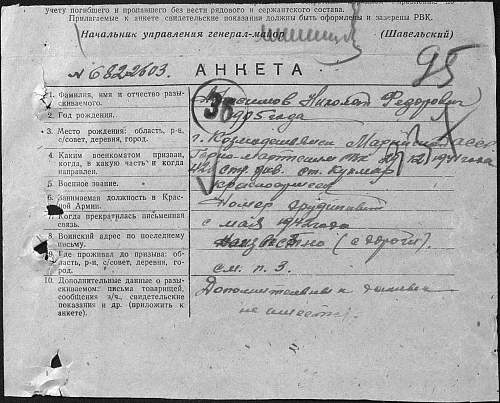 учету погибшего и пропавшего без вести рядового и сержантского состава.
Прилагаемые к анкете свидетельские показания должны быть оформлены и заверены РВК.
Начальник управления генерал-майор (Шавельский)
95
№6822603.
АНКЕТА
36
1. Фамилия, имя и отчество разыскиваемого. Николай Федорович
2. Год рождения. 1905 года
3. Место рождения: область, р-н, с/совет, деревня, город. г. Козмодемьянск Марийской АССР
4. Каким военкоматом призван, когда, в какую часть и когда направлен. Горно-Марийским РВК 1941 года
42 стр. див. ст. Кукмор
5. Военное звание. красноармеец
6. Занимаемая должность в Красной Армии. Номер орудийный
7. Когда прекратилась письменная связь. с мая 1942 года
8. Воинский адрес по последнему письму. неизвестно (с дороги).
9. Где проживал до призыва: область, р-н, с/совет, деревня, город. см. п. 3.
10. Дополнительные данные о разыскиваемом: письма товарищей, сообщения з/ч., свидетельские показания и др. (приложить к анкете). Дополнительных данных
не имеется.